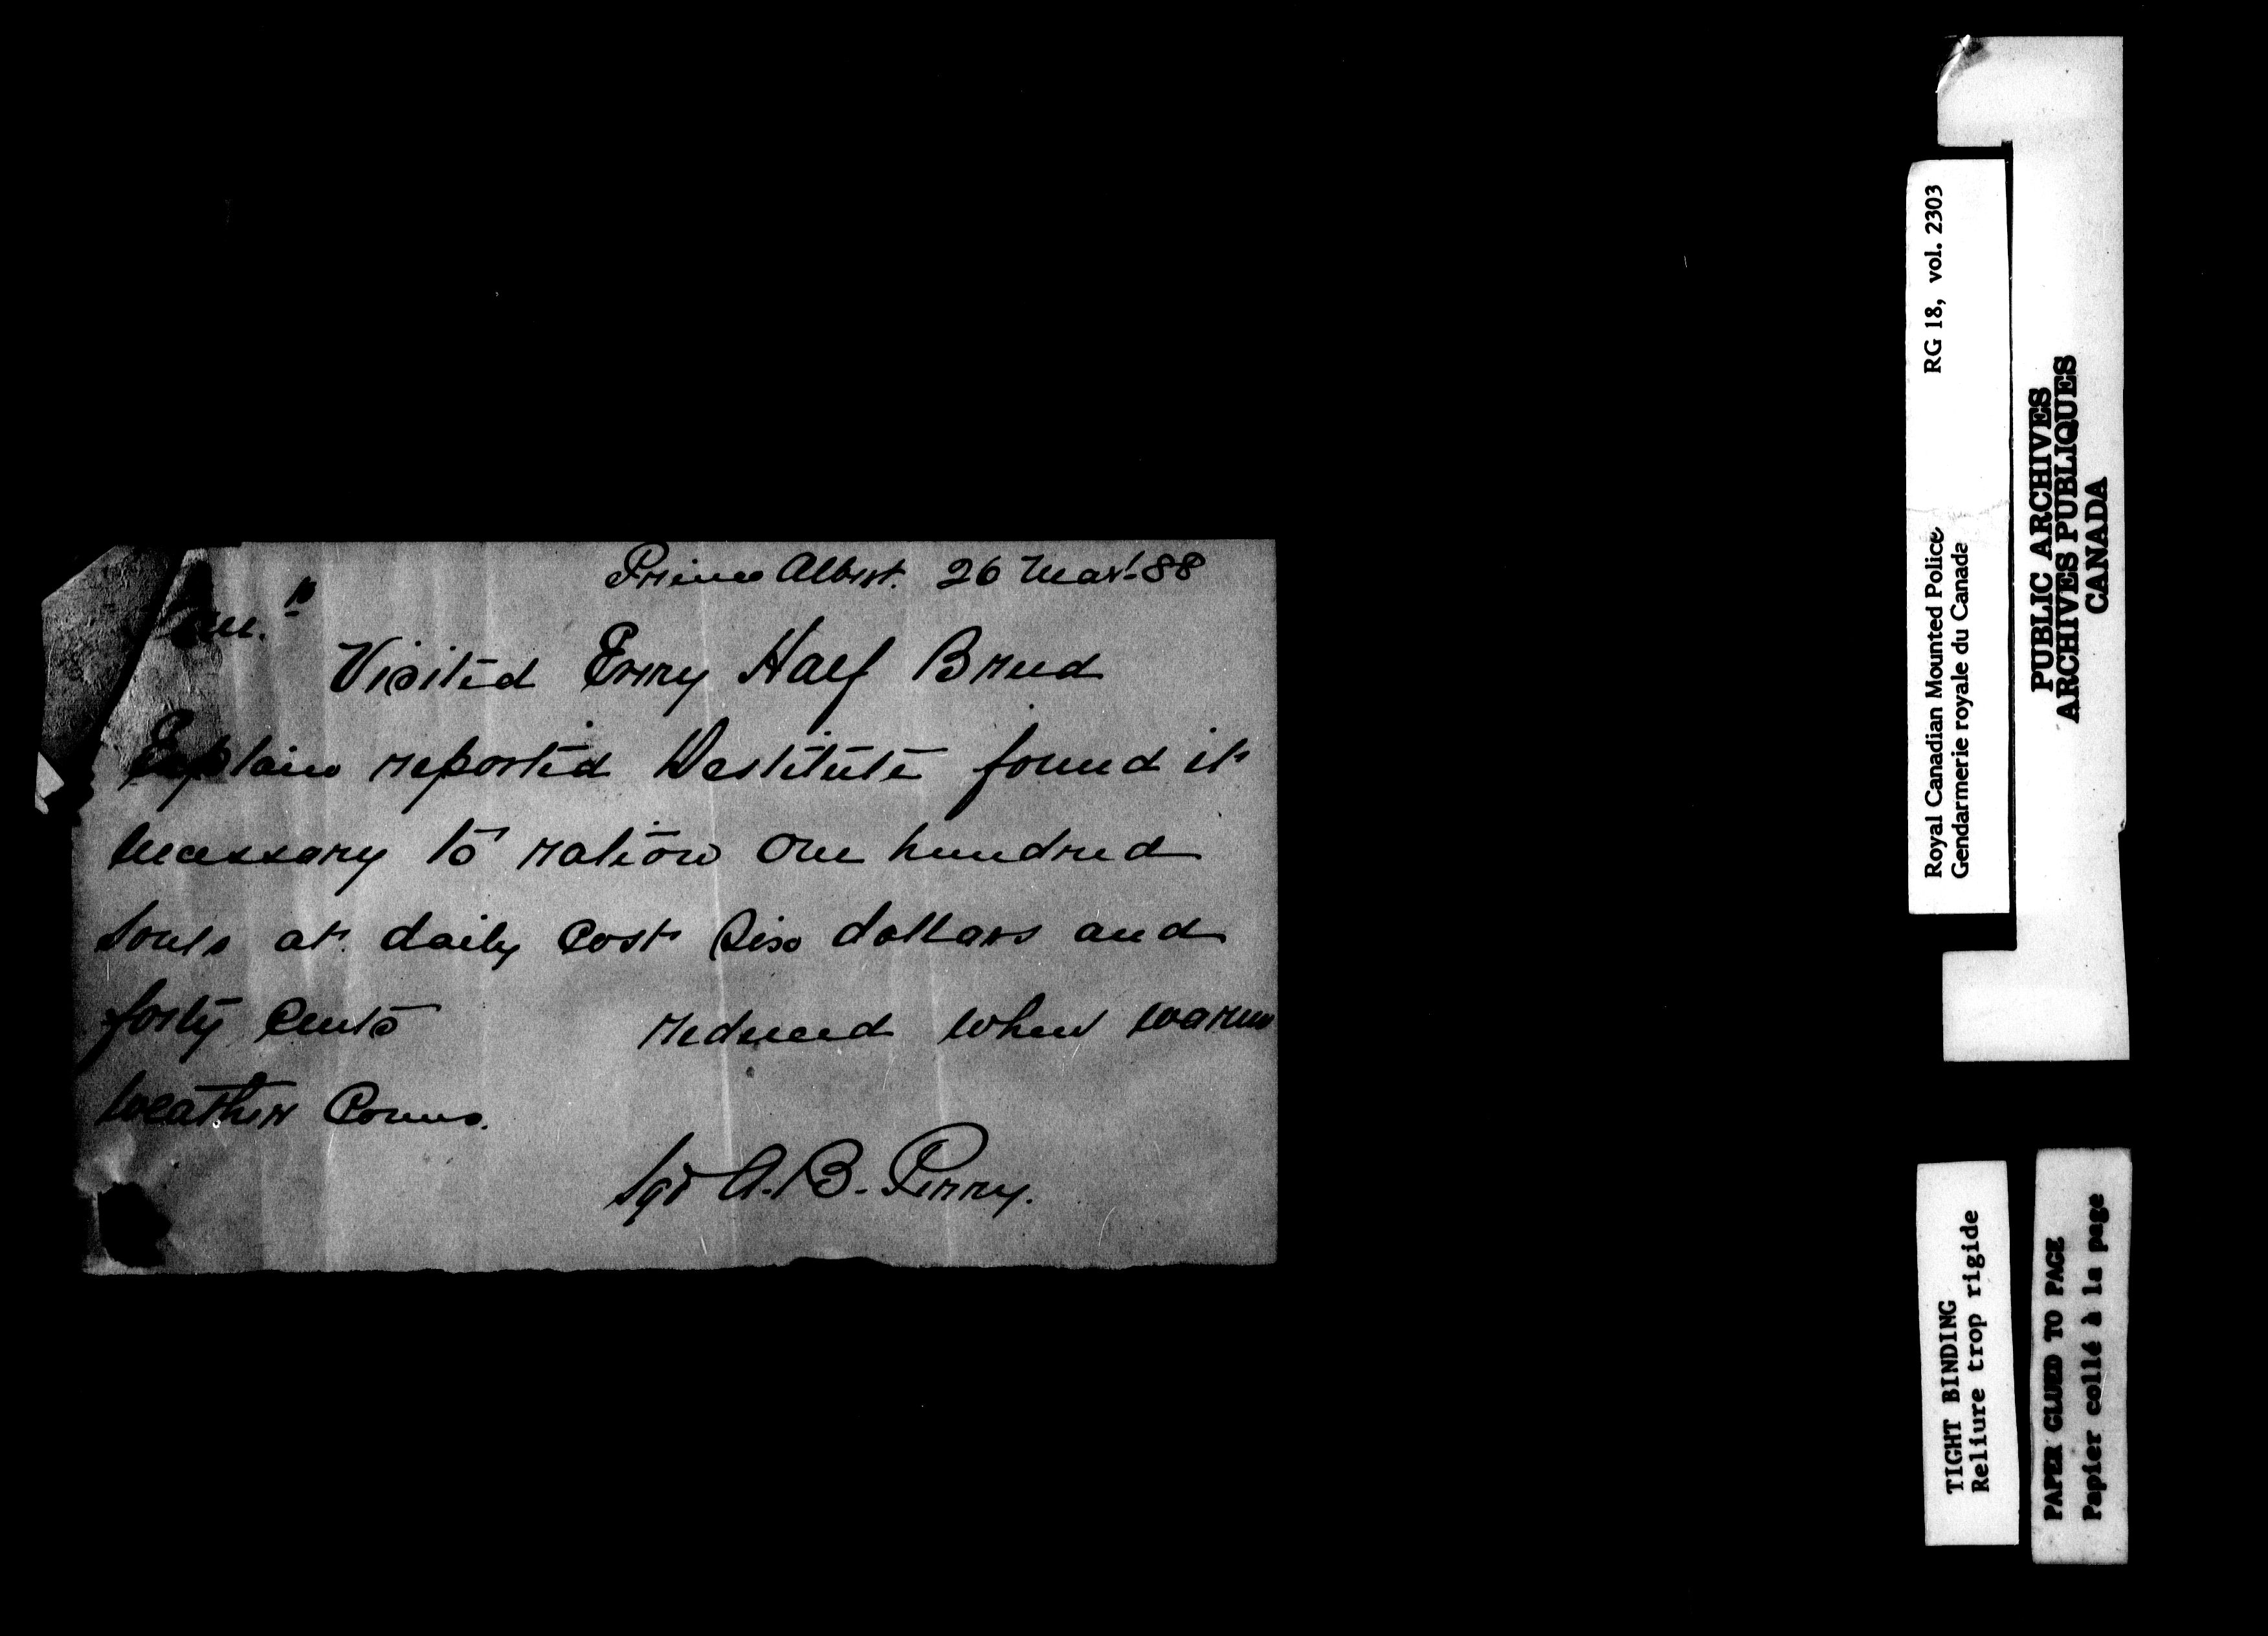 Prince Albert. 26 Mar. 88
Visited Every Half Breed
reported Destitute found it
necessary to ration one hundred
souls at daily cost Six dollars and
forty cents reduced when warm
weather Comes.
Sgd A. B. Perry.
Royal Canadian Mounted Police RG 18, vol. 2303
Gendarmerie royale du Canada
PUBLIC ARCHIVES
ARCHIVES PUBLIQUES
CANADA
TIGHT BINDING
Reliure trop rigide
PAPER GLUED TO PAGE
Papier collé à la page